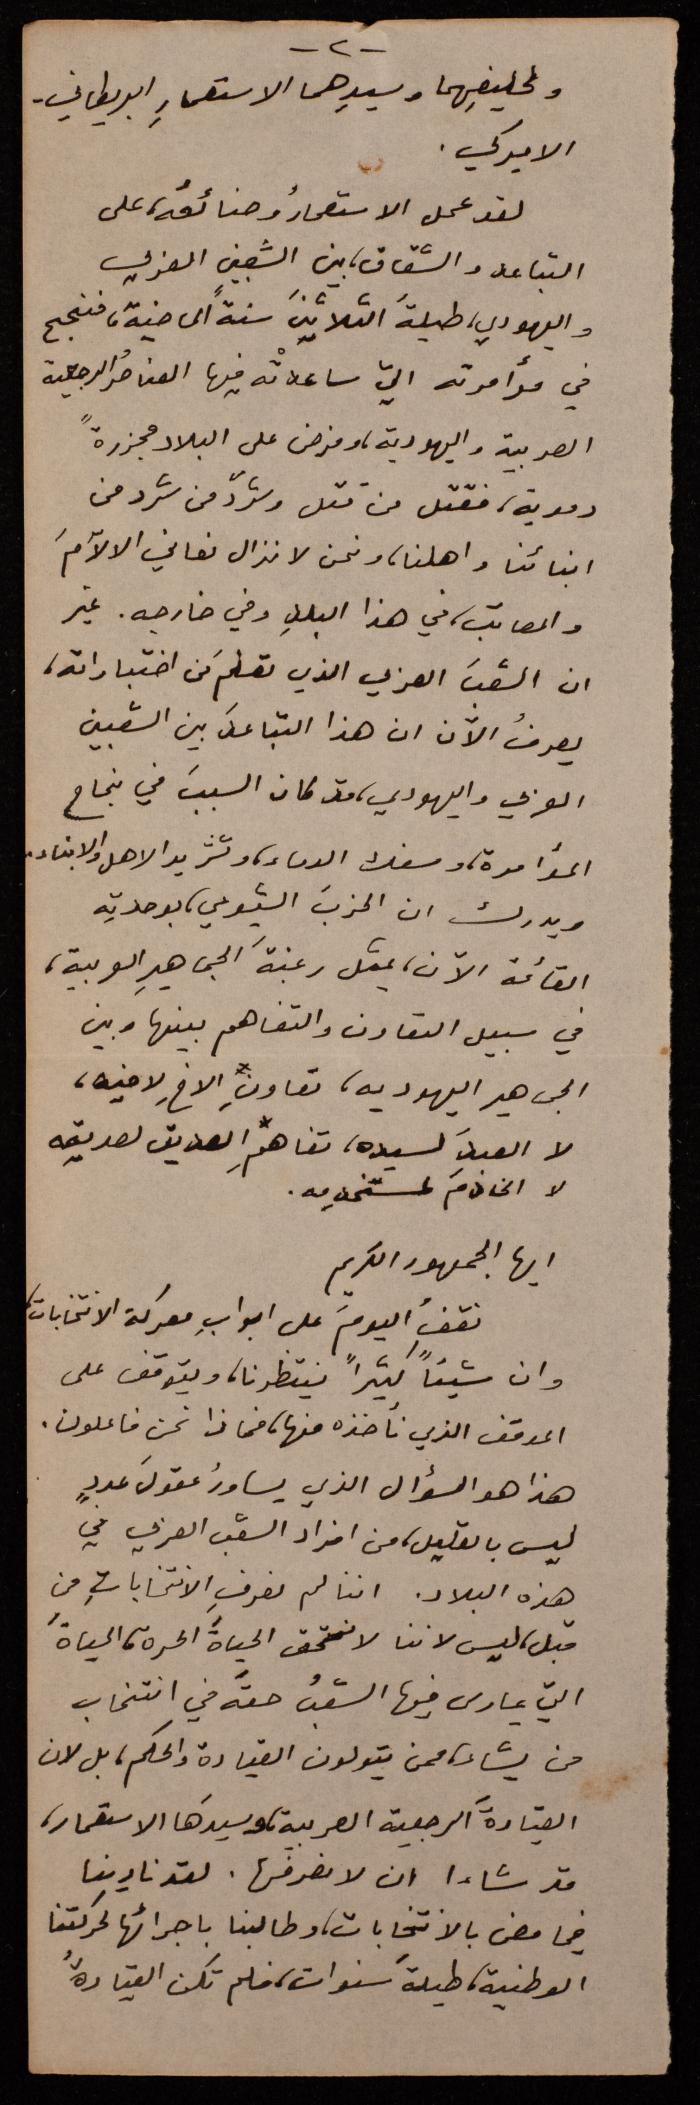 -٢-
ولحليفهما وسيدِهما الاستعمارِ البريطاني-
الاميركي.
لقد عمل الاستعمارُ وصنائعُه، على
التباعد والشقاق، بين الشعبين العربي
واليهودي، طيلةَ الثلاثينَ سنةً الماضية، فنجح
في مؤامرته التي ساعدتْه فيها العناصرُ الرجعية
العربية واليهودية، وفرض على البلاد مجزرةً
دموية، فقتل من قتل وشرّد من شرد من
ابنائنا واهلنا، ونحن لا نزال نعاني الآلامَ
والمصائب، في هذا البلدِ وفي خارجه. غير
ان الشعبَ العربي الذي تعلم من اختباراته،
يعرفُ الآن ان هذا التباعدَ بين الشعبين
العربي واليهودي، قد كان السببَ في نجاح
المؤامرة، وسفك الدماء، وتشريد الاهل والابناء.
ويدرك ان الحزبَ الشيوعي، بوحدته
القائمة الآن، يمثل رغبةَ الجماهيرِ العربية،
في سبيل التعاون والتفاهم بينها وبين
الجماهير اليهودية، تعاونِ الاخِ لاخيه،
لا العبدَ لسيده، تفاهمِ الصديق لصديقه
لا الخادمَ لمستخدمه.
ايها الجمهور الكريم
نقفُ اليومَ على ابوابِ معركة الانتخابات،
وان شيئاً كثيراً ينتظرنا، ويتوقف على
الموقف الذي نأخذه منها، فماذا نحن فاعلون.
هذا هو السؤال الذي يساورُ عقولَ عددٍ
ليس بالقليل، من افراد الشعب العربي في
هذه البلاد. اننا لم نعرفِ الانتخاباتِ من
قبل، ليس لاننا لا نستحق الحياةَ الحرة، الحياةَ
التي يمارس فيها الشعبُ حقَّه في انتخاب
من يشاء، ممن يتولون القيادة والحكم، بل لان
القيادةَ الرجعية العربية، وسيدَها الاستعمار،
قد شاءا ان لا نعرفَها. لقد نادينا
فيما مضى بالانتخابات، وطالبنا باجرائها لحركتنا
الوطنية، طيلةَ سنوات، فلم تكن القيادةُ